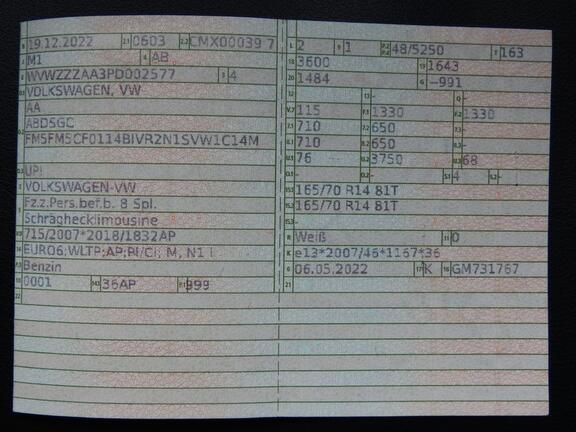 B 19.12.2022 2.1 0603 2.2 CMX00039 7
J M1 4 AB
E WVWZZZAA3PD002577 3 4
D.1 VOLKSWAGEN, VW
AA
D.2 ABDSGC
FM5FM5CF0114BIVR2N1SVW1C14M
D.3 UP!
2 VOLKSWAGEN-VW
5 Fz.z.Pers.bef.b. 8 Spl.
Schräghecklimousine
V.9 715/2007*2018/1832AP
14 EURO6;WLTP;AP;PI/CI; M, N1 I
P.3 Benzin
10 0001 14.1 36AP P.1 999
22
L 2 9 1 P.2 P.4 48/5250 T 163
18 3600 19 1643
20 1484 G --991
12 - 13 - Q -
V.7 115 F.1 1330 F.2 1330
7.1 710 7.2 650 7.3 -
8.1 710 8.2 650 8.3 -
U.1 76 U.2 3750 U.3 68
O.1 - O.2 - S.1 4 S.2 -
15.1 165/70 R14 81T
15.2 165/70 R14 81T
15.3 -
R Weiß 11 0
K e13*2007/46*1167*36
6 06.05.2022 17 K 16 GM731767
21